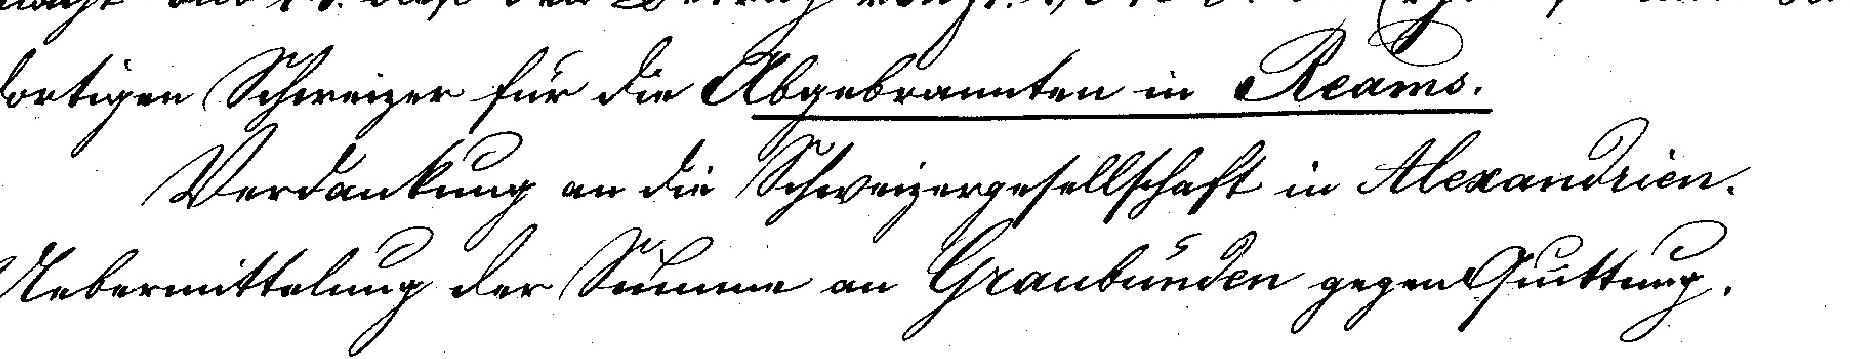 dortigen Schweizer für die Abgebrannten in Reams.
Verdankung an die Schweizergesellschaft in Alexandrien.
Uebermittelung der Summe an Graubünden gegen Quittung.